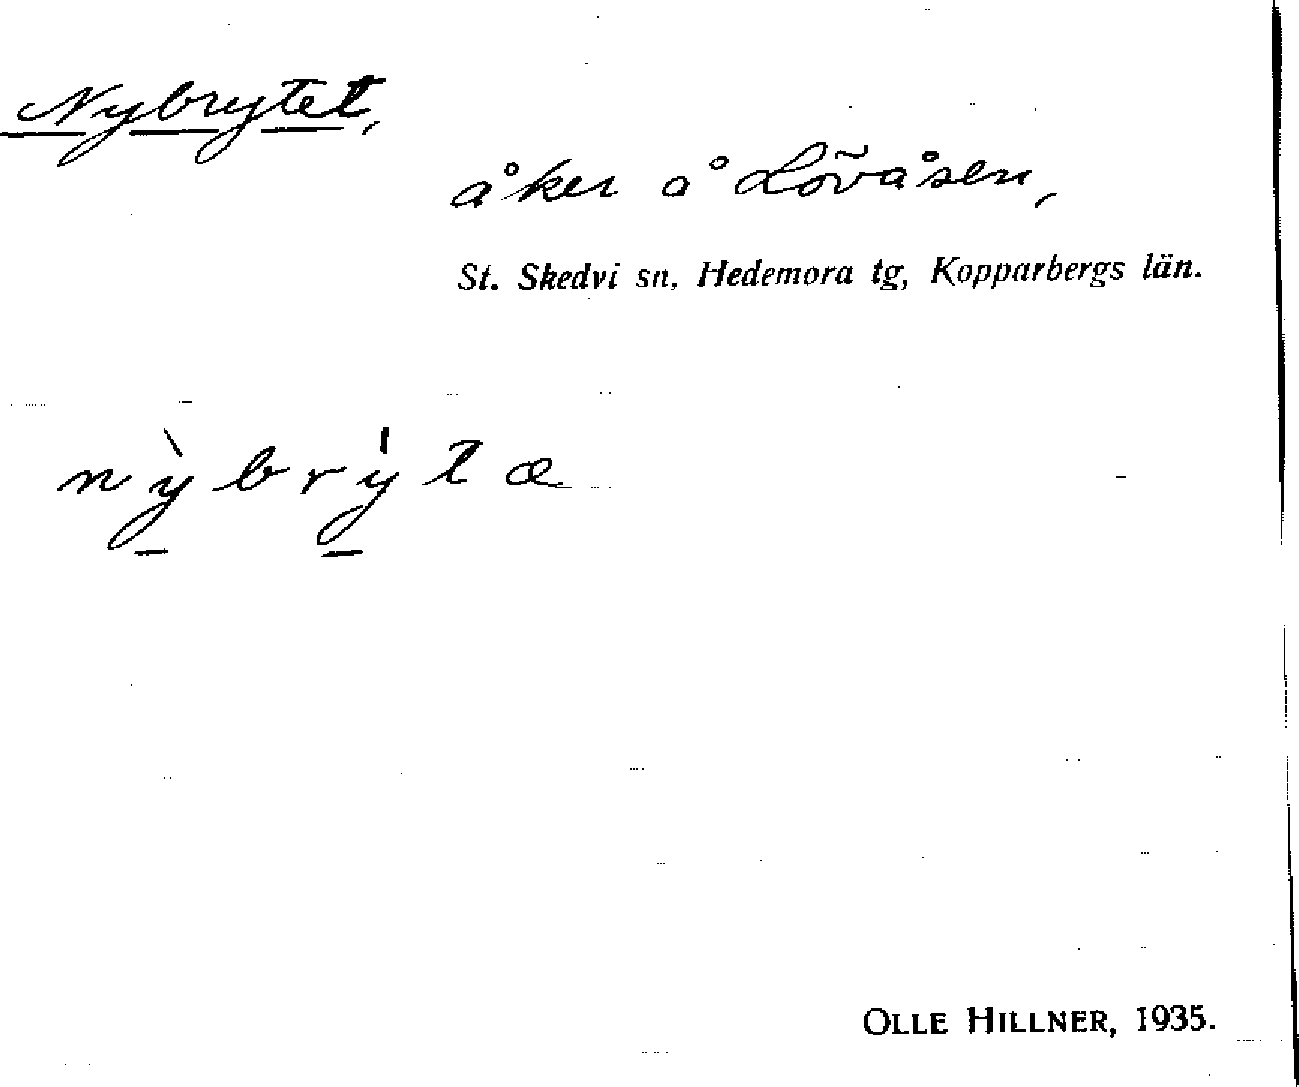 Nybrytet,
åker å Lövåsen,
St. Skedvi sn, Hedemora tg, Kopparbergs län.
nỳ̠bry̠̍tæ
OLLE HILLNER, 1935.